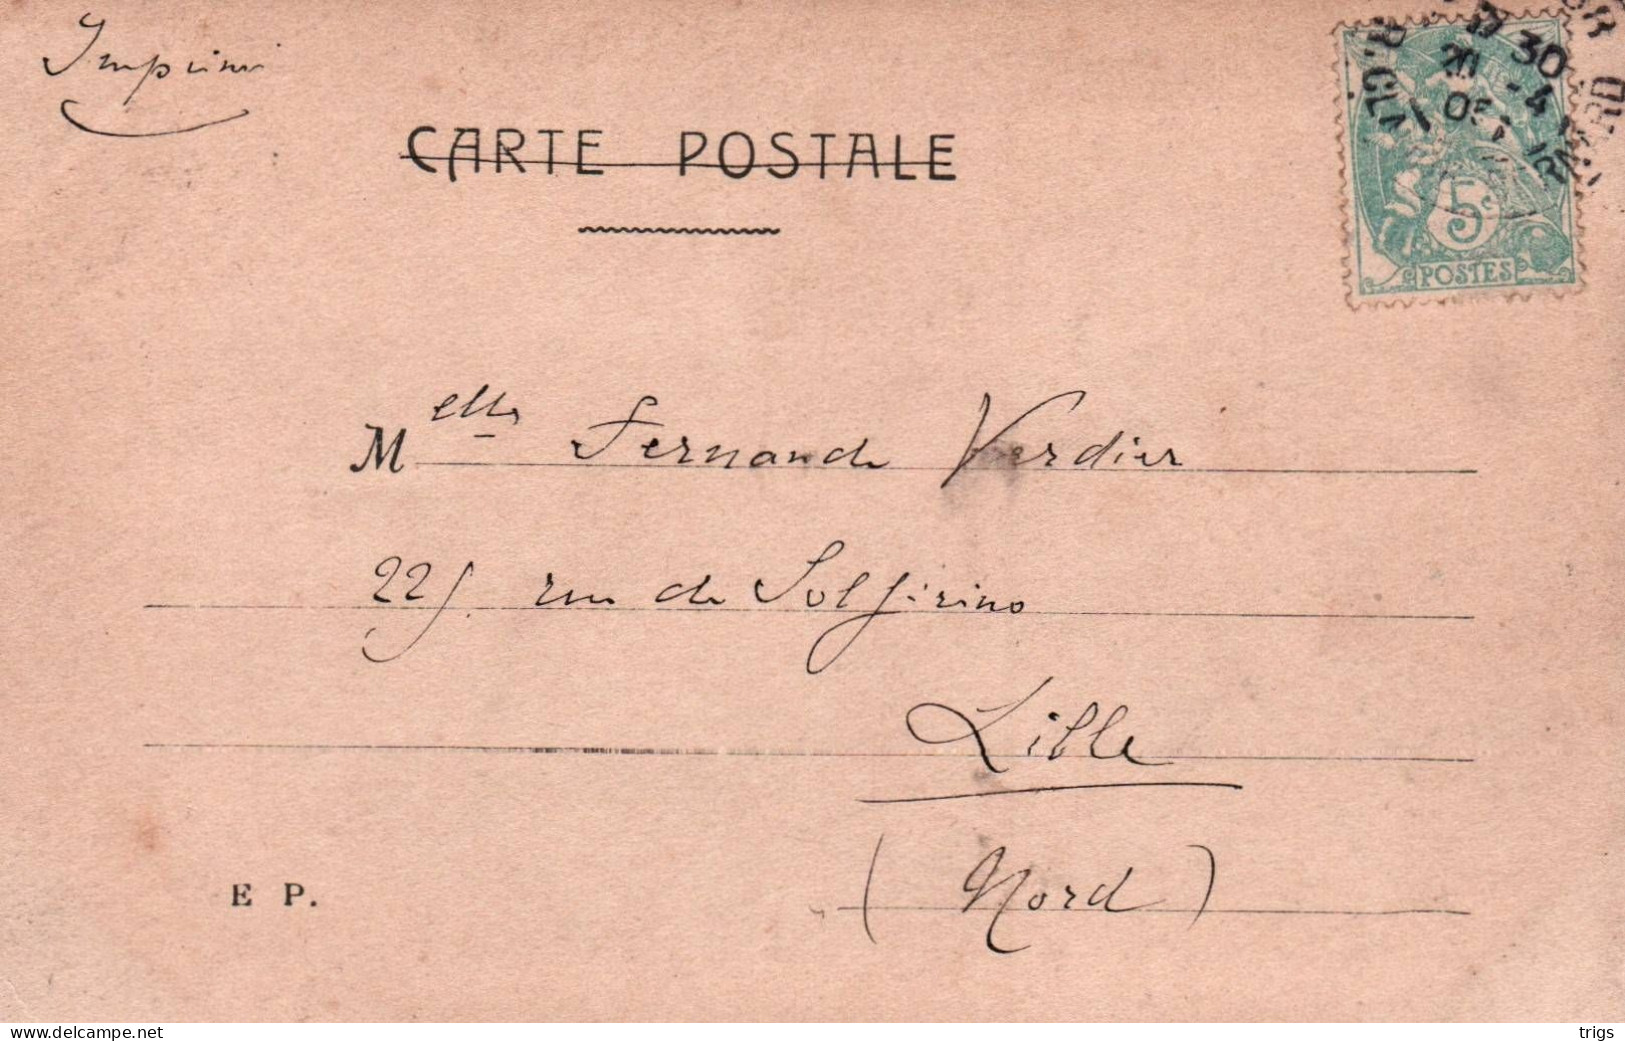 Imprimé
CARTE POSTALE
17 30
20 -4
05
R. CL
RNARD
5c
POSTES
Melle Fernande Verdier
225 rue de Solférino
Lille
(Nord)
E P.
www.delcampe.net
trigs